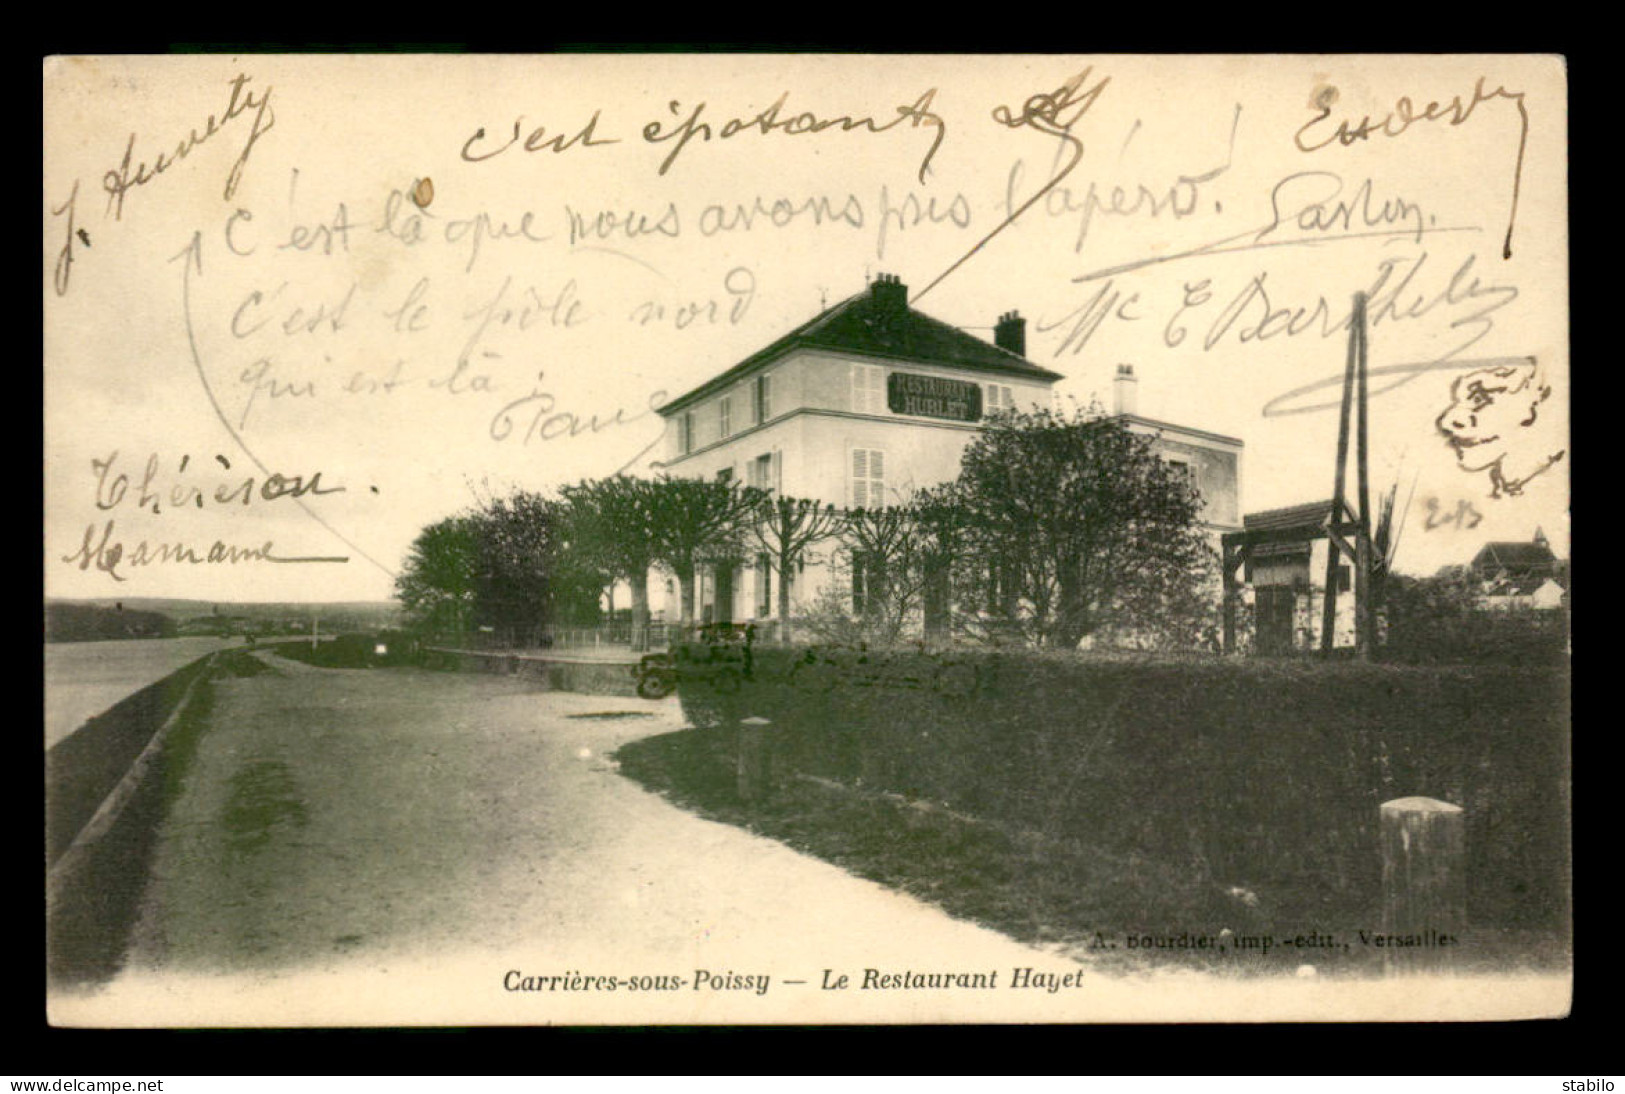 J. Auvety
c'est épatant
C'est là que nous avons pris l'apéro.!
Gaston.
c'est le pôle nord
qui est là.
Mc E Barthel
RESTAURANT
HUBLET
Thérèson.
Mamame
A. Bourdier, imp.-edit., Versailles
Carrières-sous-Poissy — Le Restaurant Hayet
Marque(s): www.delcampe.net/en_US/store/marinecarte
stabilo